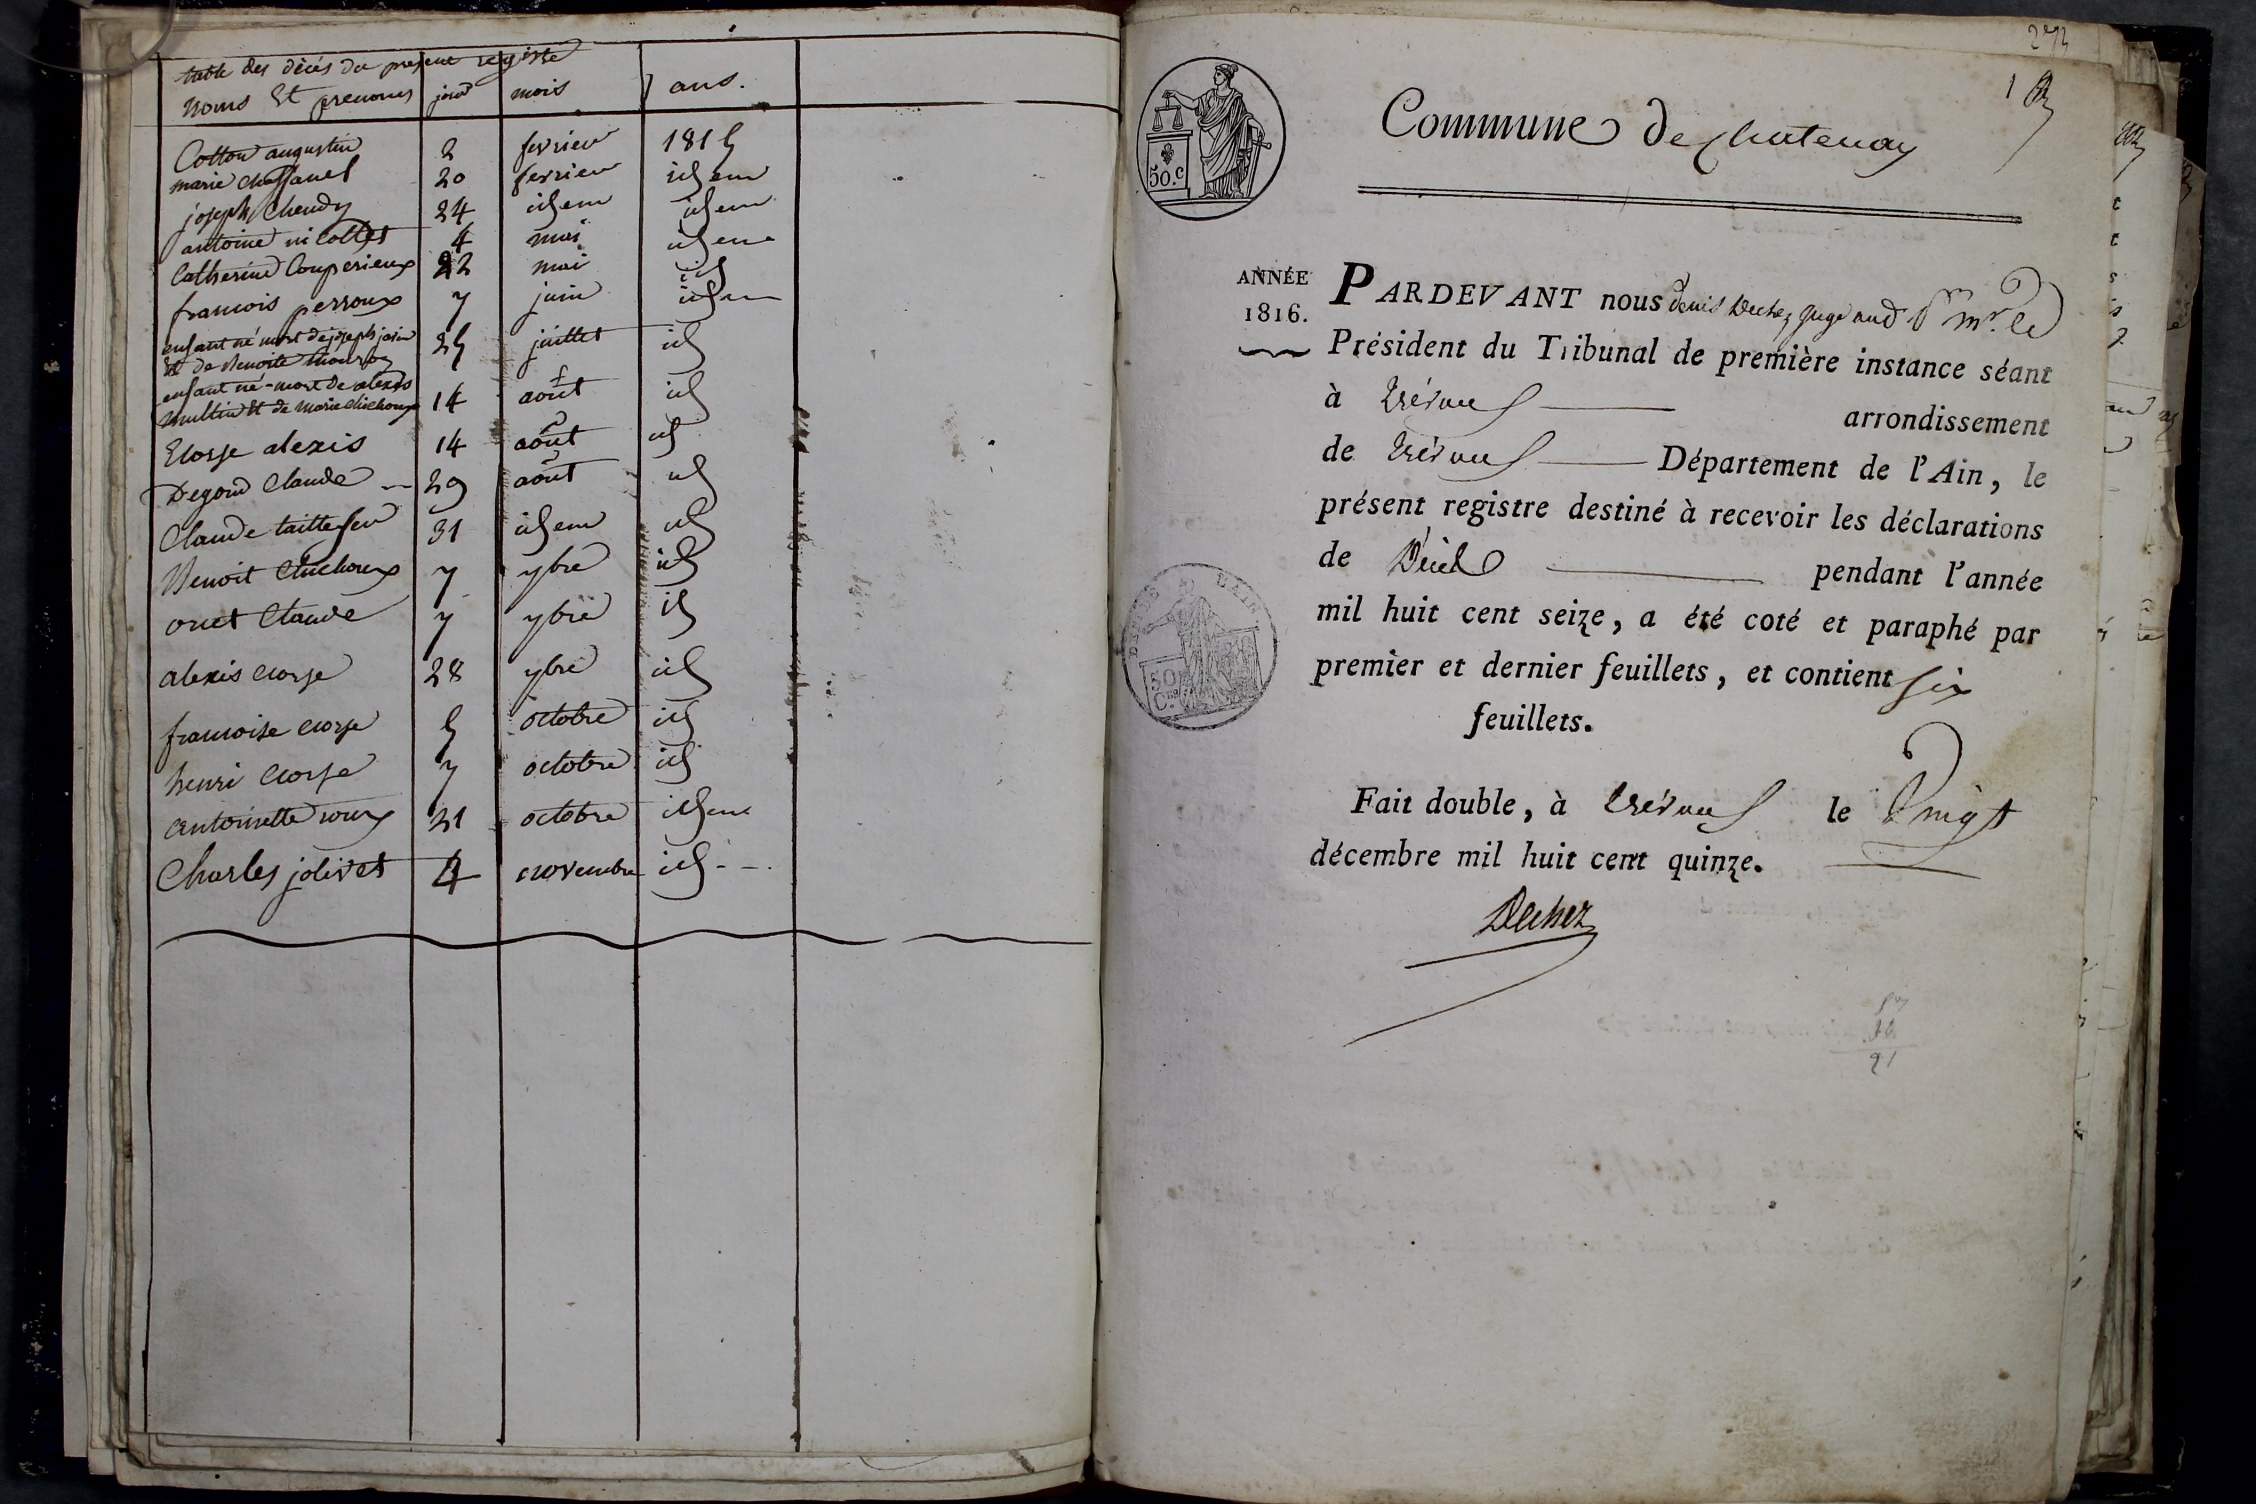 table des décés du present registre
noms Et prenoms jour mois ans.
Cotton augustin 2 fevrier 1815
marie chaffanel 20 fevrier idem
joseph Chendy 24 idem idem
antoine nicollet 4 mai idem
Catherine Couperieux 22 mai id
francois perroux 7 juin idem
enfant né mort de joseph josin
et de Benoite 25 juillet id
enfant né-mort de alexis
multin Et de marie Chichoux 14 août id
Ecorse alexis 14 août id
Degoud Claude 29 août id
Claude taillefer 31 idem id
Benoit Chichoux 7 7bre id
oret Claude 7 7bre id
alexis Ecorse 28 7bre id
francoise Ecorse 5 octobre id
henri Ecorse 7 octobre id
antoinette roux 21 octobre idem
Charles jolivet 4 novembre id
272
1
Commune de Chatenay
50.c
ANNÉE
1816.
PARDEVANT nous denis Dechez juge aud. Pr mr. le
Président du Tribunal de première instance séant
à trévoux arrondissement
de trévoux Département de l'Ain, le
présent registre destiné à recevoir les déclarations
de Décès pendant l'année
mil huit cent seize, a été coté et paraphé par
premier et dernier feuillets, et contient six
feuillets.
50
Fait double, à trévoux le vingt
décembre mil huit cent quinze.
Dechez